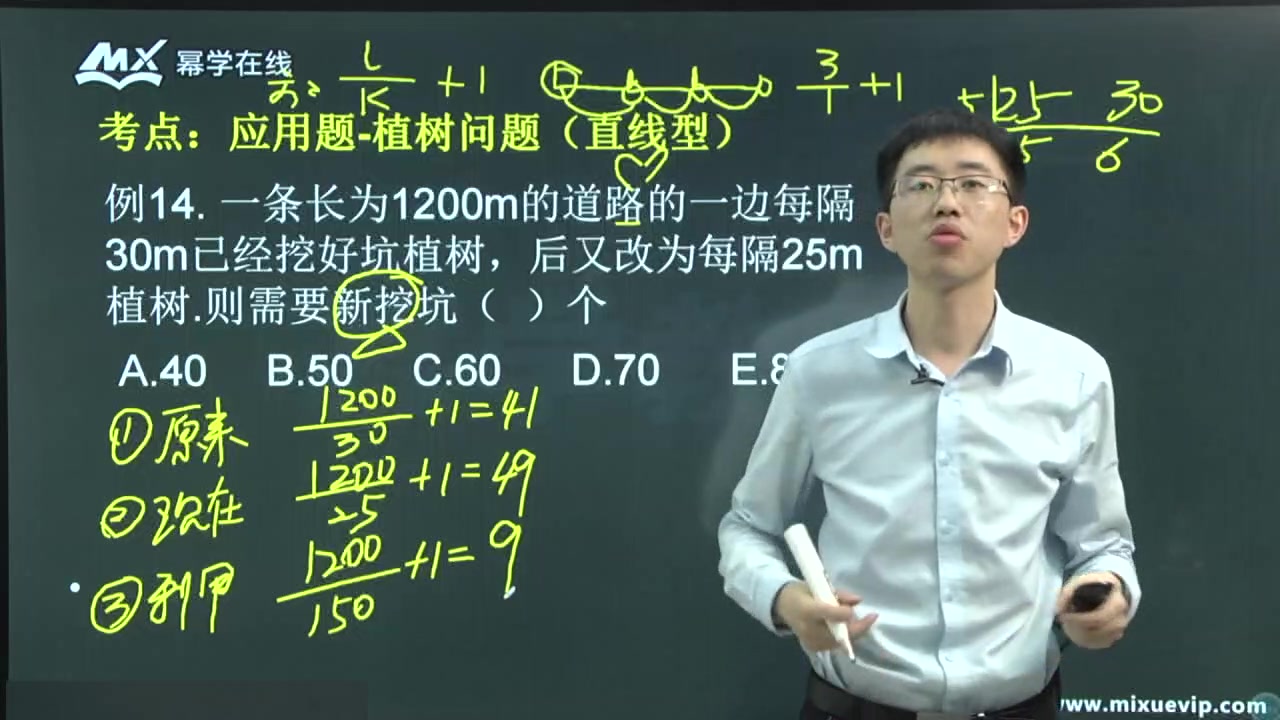 MX 幂学在线
L/K + 1
3/1 +1
5 25 30
5 6
考点：应用题-植树问题（直线型）
例14. 一条长为1200m的道路的一边每隔
30m已经挖好坑植树，后又改为每隔25m
植树.则需要新挖坑（ ）个
A.40 B.50 C.60 D.70 E.8
①原来 1200/30 +1=41
②现在 1200/25 +1=49
③利用 1200/150 +1=9
www.mixuevip.com